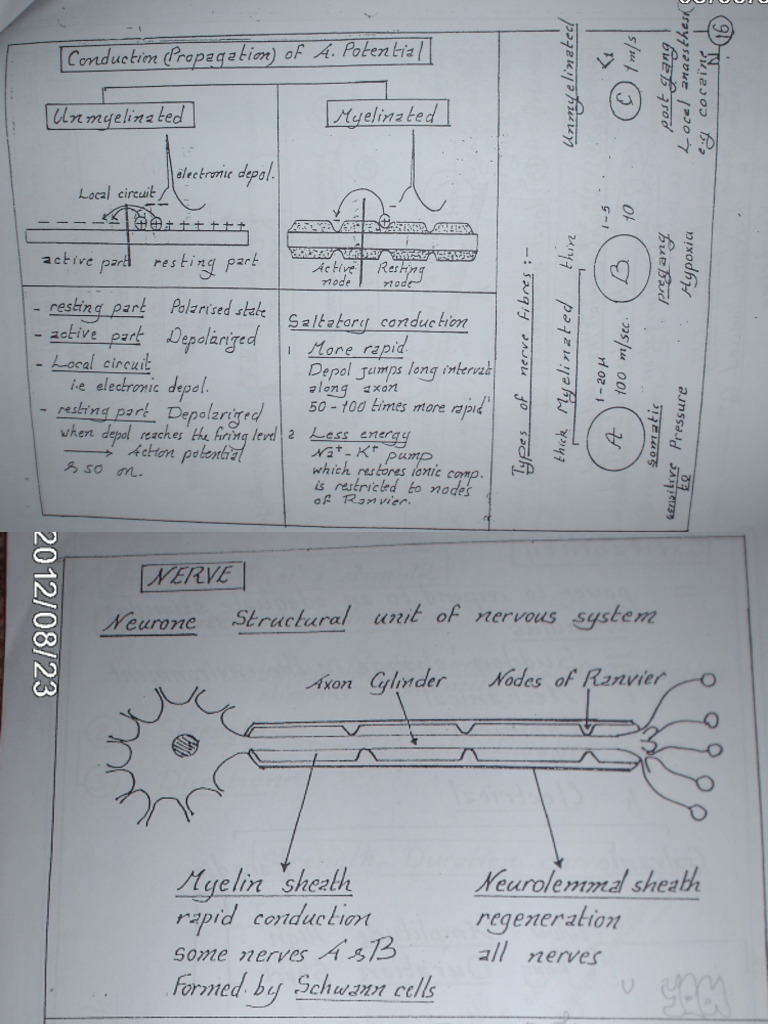 16
Conduction (Propagation) of A. Potential
Unmyelinated
Myelinated
electronic depol.
Local circuit
active part resting part
Active node
Resting node
- resting part Polarised state
- active part Depolarized
- Local circuit
i.e electronic depol.
- resting part Depolarized
when depol reaches the firing level
→ Action potential
& so on.
Saltatory conduction
1 More rapid.
Depol jumps long interval
along axon
50-100 times more rapid
2 Less energy
Na+ - K+ pump
which restores ionic comp.
is restricted to nodes
of Ranvier.
Types of nerve fibres:-
thick Myelinated thin
Unmyelinated
A
1-20 µ
100 m/sec.
B
1-5
10
C
<1
1 m/s
somatic
pregang
post gang
sensitive to Pressure
Hypoxia
Local anaesthesia
e.g cocaine
2012/08/23
NERVE
Neurone Structural unit of nervous system
Axon Cylinder
Nodes of Ranvier
Myelin sheath
rapid conduction
some nerves A & B
Formed by Schwann cells
Neurolemmal sheath
regeneration
all nerves